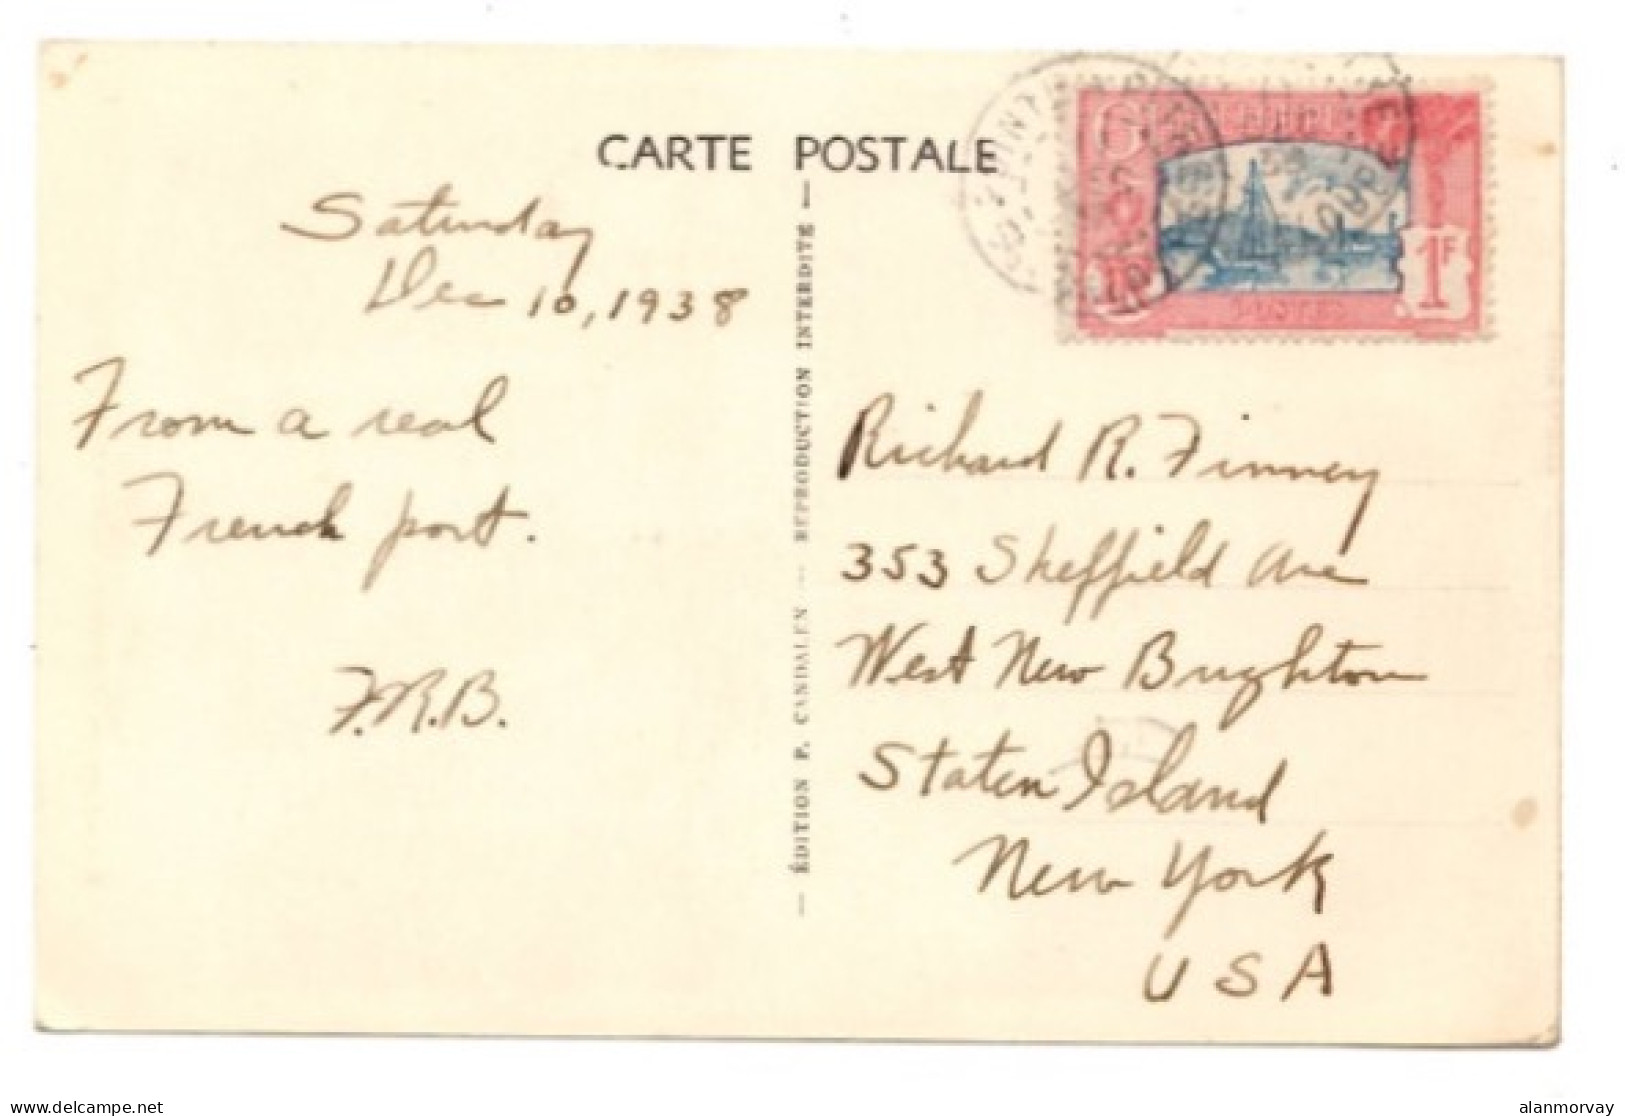 CARTE POSTALE
Saturday
Dec 10, 1938
From a real
French port.
F.R.B.
— ÉDITION P. CANDALEN — REPRODUCTION INTERDITE —
POSTES
1F
Richard R. Finney
353 Sheffield Ave
West New Brighton
Staten Island
New York
U S A
delcampe.net
alanmorvay